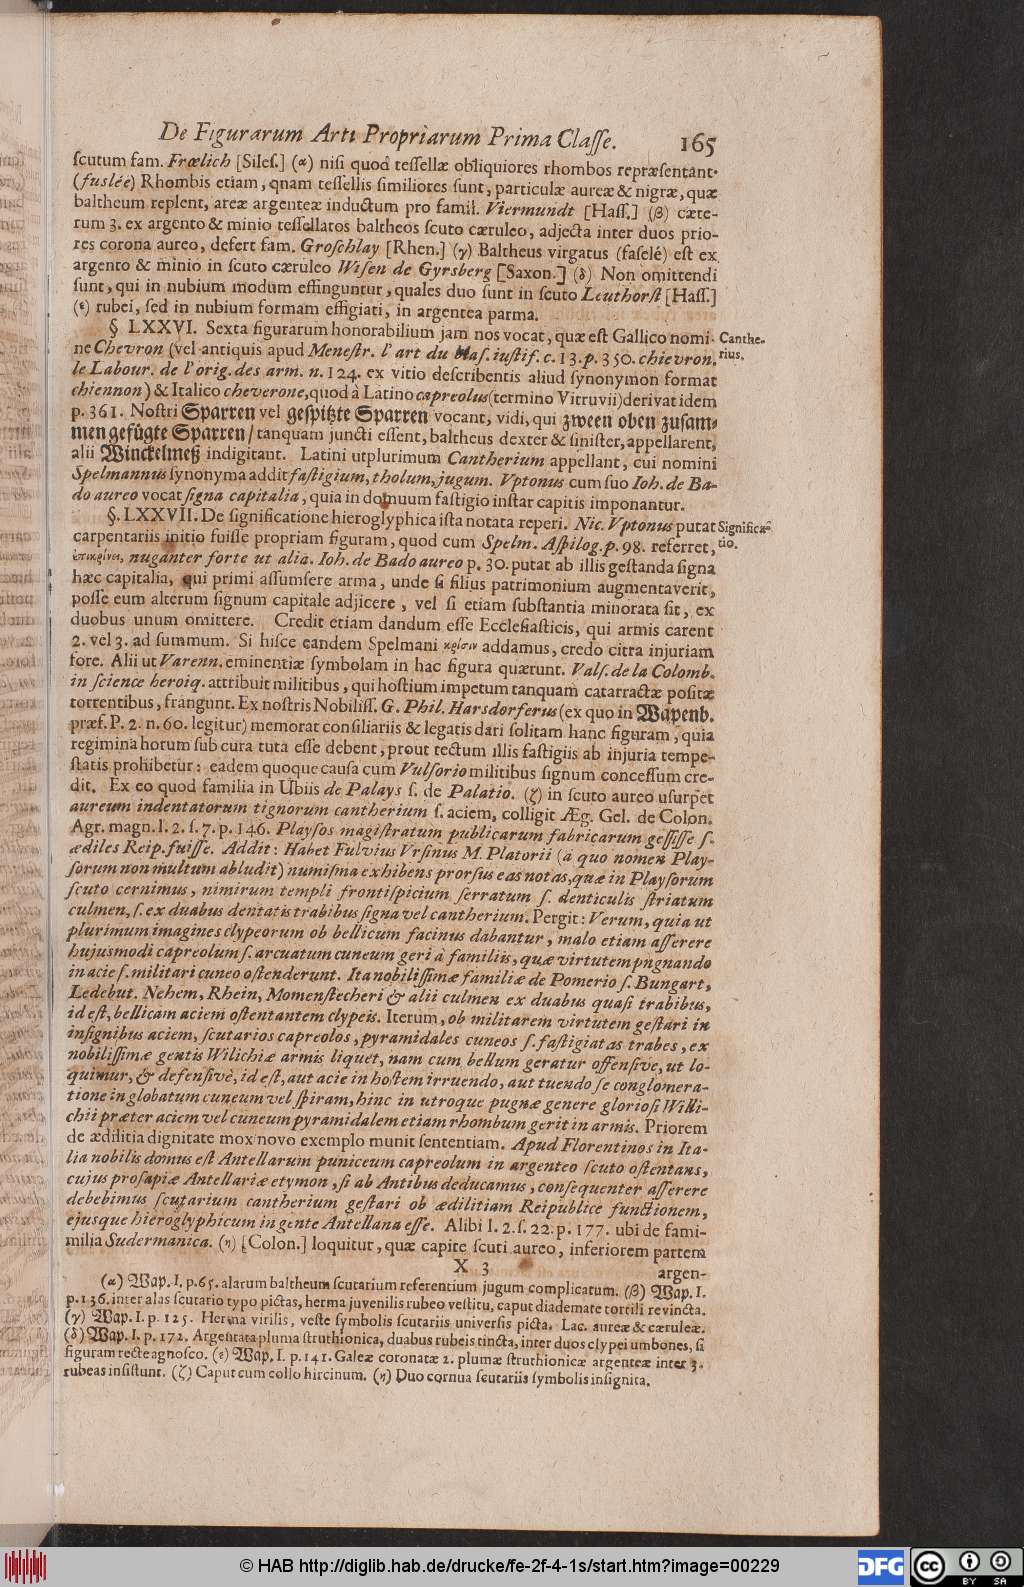 De Figurarum Arti Propriarum Prima Classe. 165
scutum fam. Frœlich [Siles.] (α) nisi quod tessellæ obliquiores rhombos repræsentant.
(fuslée) Rhombis etiam, quam tessellis similiores sunt, particulæ aureæ & nigræ, quæ
baltheum replent, areæ argenteæ inductum pro famil. Viermundt [Hass.] (β) cæte-
rum 3. ex argento & minio tessellatos baltheos scuto cæruleo, adjecta inter duos prio-
res corona aureo, defert fam. Groschlay [Rhen.] (γ) Baltheus virgatus (faselé) est ex
argento & minio in scuto cæruleo Wisen de Gyrsberg [Saxon.] (δ) Non omittendi
sunt, qui in nubium modum effinguntur, quales duo sunt in scuto Leuthorst [Hass.]
(ε) rubei, sed in nubium formam effigiati, in argentea parma.
§ LXXVI. Sexta figurarum honorabilium jam nos vocat, quæ est Gallico nomi-
Canthe-
rius.
ne Chevron (vel antiquis apud Menestr. l'art du blas. iustif. c. 13. p. 350. chievron.
le Labour. de l'orig. des arm. n. 124. ex vitio describentis aliud synonymon format
chiennon) & Italico cheverone, quod à Latino capreolus (termino Vitruvii) derivat idem
p. 361. Nostri Sparren vel gespitzte Sparren vocant, vidi, qui zween oben zusam-
men gefügte Sparren / tanquam juncti essent, baltheus dexter & sinister, appellarent,
alii Winckelmeß indigitant. Latini utplurimum Cantherium appellant, cui nomini
Spelmannus synonyma addit fastigium, tholum, jugum. Uptonus cum suo Ioh. de Ba-
do aureo vocat signa capitalia, quia in domuum fastigio instar capitis imponantur.
§. LXXVII. De significatione hieroglyphica ista notata reperi. Nic. Uptonus putat
Significa-
tio.
carpentariis initio fuisse propriam figuram, quod cum Spelm. Aspilog. p. 98. referret,
ἐπικρίνει, nuganter forte ut alia. Ioh. de Bado aureo p. 30. putat ab illis gestanda signa
hæc capitalia, qui primi assumsere arma, unde si filius patrimonium augmentaverit,
posse eum alterum signum capitale adjicere, vel si etiam substantia minorata sit, ex
duobus unum omittere. Credit etiam dandum esse Ecclesiasticis, qui armis carent
2. vel 3. ad summum. Si hisce eandem Spelmani κρίσιν addamus, credo citra injuriam
fore. Alii ut Varenn. eminentiæ symbolam in hac figura quærunt. Vals. de la Colomb.
in science heroiq. attribuit militibus, qui hostium impetum tanquam catarractæ positæ
torrentibus, frangunt. Ex nostris Nobiliss. G. Phil. Harsdorferus (ex quo in Wapenb.
præf. P. 2. n. 60. legitur) memorat consiliariis & legatis dari solitam hanc figuram, quia
regimina horum sub cura tuta esse debent, prout tectum illis fastigiis ab injuria tempe-
statis prohibetur: eadem quoque causa cum Vulsorio militibus signum concessum cre-
dit. Ex eo quod familia in Ubiis de Palays s. de Palatio. (ζ) in scuto aureo usurpet
aureum indentatorum tignorum cantherium s. aciem, colligit Æg. Gel. de Colon.
Agr. magn. l. 2. s. 7. p. 146. Playsos magistratum publicarum fabricarum gessisse s.
ædiles Reip. fuisse. Addit: Habet Fulvius Ursinus M. Platorii (à quo nomen Play-
sorum non multum abludit) numisma exhibens prorsus eas notas, quæ in Playsorum
scuto cernimus, nimirum templi frontispicium serratum s. denticulis striatum
culmen, s. ex duabus dentatis trabibus signa vel cantherium. Pergit: Verum, quia ut
plurimum imagines clypeorum ob bellicum facinus dabantur, malo etiam asserere
hujusmodi capreolum s. arcuatum cuneum geri à familiis, quæ virtutem pugnando
in acie s. militari cuneo ostenderunt. Ita nobilissimæ familiæ de Pomerio s. Bungart,
Ledebut. Nehem, Rhein, Momenstecheri & alii culmen ex duabus quasi trabibus,
id est, bellicam aciem ostentantem clypeis. Iterum, ob militarem virtutem gestari in
insignibus aciem, scutarios capreolos, pyramidales cuneos s. fastigiatas trabes, ex
nobilissimæ gentis Wilichiæ armis liquet, nam cum bellum geratur offensive, ut lo-
quimur, & defensivè, id est, aut acie in hostem irruendo, aut tuendo se conglomera-
tione in globatum cuneum vel spiram, hinc in utroque pugnæ genere gloriosi Willi-
chii præter aciem vel cuneum pyramidalem etiam rhombum gerit in armis. Priorem
de ædilitia dignitate mox novo exemplo munit sententiam. Apud Florentinos in Ita-
lia nobilis domus est Antellarum puniceum capreolum in argenteo scuto ostentans,
cujus prosapiæ Antellariæ etymon, si ab Antibus deducamus, consequenter asserere
debebimus scutarium cantherium gestari ob ædilitiam Reipublice functionem,
ejusque hieroglyphicum in gente Antellana esse. Alibi l. 2. s. 22. p. 177. ubi de fami-
milia Sudermanica. (η) [Colon.] loquitur, quæ capite scuti aureo, inferiorem partem
X 3 argen-
(α) Wap. I. p. 65. alarum baltheum scutarium referentium jugum complicatum. (β) Wap. I.
p. 136. inter alas scutario typo pictas, herma juvenilis rubeo vestitu, caput diademate tortili revincta.
(γ) Wap. I. p. 125. Herma virilis, veste symbolis scutariis universis picta. Lac. aureæ & cæruleæ.
(δ) Wap. I. p. 172. Argentata pluma struthionica, duabus rubeis tincta, inter duos clypei umbones, si
figuram recte agnosco. (ε) Wap. I. p. 141. Galeæ coronatæ 2. plumæ struthionicæ argenteæ inter 3.
rubeas insistunt. (ζ) Caput cum collo hircinum. (η) Duo cornua scutariis symbolis insignita.
© HAB http://diglib.hab.de/drucke/fe-2f-4-1s/start.htm?image=00229
DFG
cc BY SA